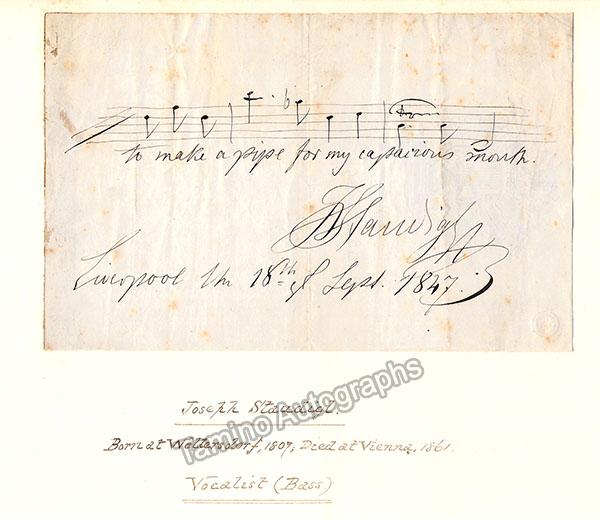 to make a pipe for my capacious mouth.
JStaudigl
Liverpool the 18th of Sept. 1847.
Tamino Autographs
Joseph Staudigl.
Born at Wollersdorf, 1807; Died at Vienna, 1861.
Vocalist (Bass)